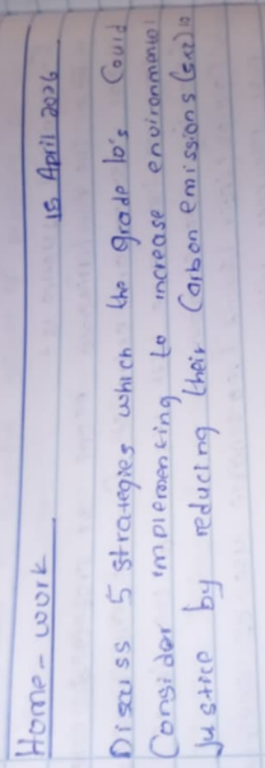 Home-work
15 April 2026
Discuss 5 strategies which the grade 10's could
Consider implementing to increase environmental
Justice by reducing their Carbon emissions (5x2) 10